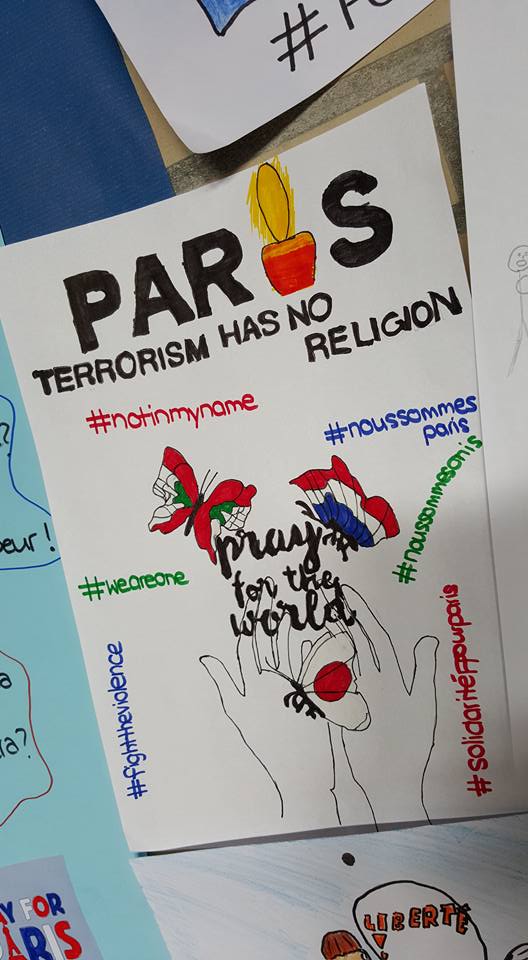 PARIS
TERRORISM HAS NO
RELIGION
#notinmyname
#noussommes
paris
#noussommesonis
pray
for the
world
#weareone
#fighttheviolence
#solidaritéppourparis
eur !
AY FOR
ARIS
LIBERTÉ